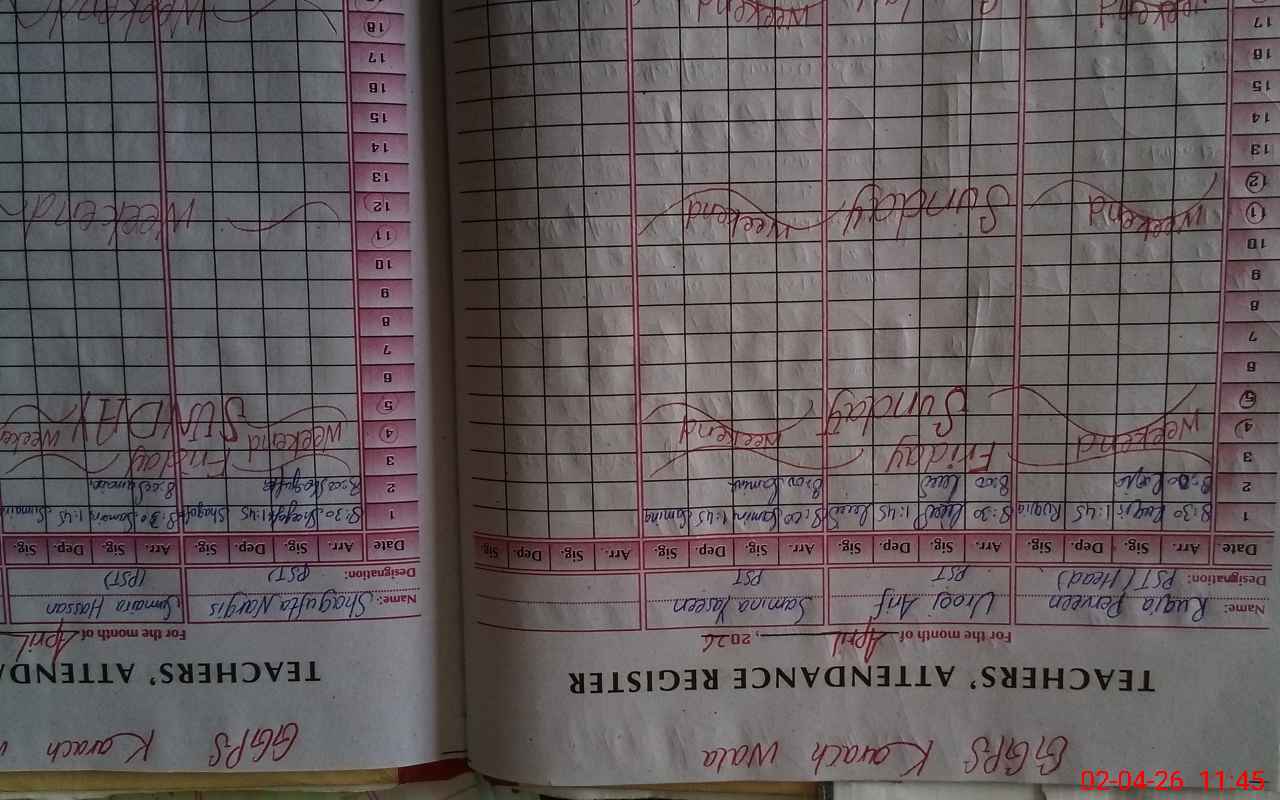 GGPS Karach Wala
TEACHERS' ATTENDANCE REGISTER
For the month of April, 2026
Name: Ruqia Perveen Urooj Arif Samina Yaseen
Designation: PST (Head) PST PST
Date Arr. Sig. Dep. Sig. Arr. Sig. Dep. Sig. Arr. Sig. Dep. Sig. Arr. Sig. Dep. Sig.
1 8:30 Ruqia 1:45 Ruqia 8:30 1:45 8:00 Samina 1:45 Samina
2 8:00 Ruqia 8:00 8:00 Samina
3 Friday
4 Weekend Sunday Weekend
5
6
7
8
9
10
11 Weekend Sunday Weekend
12
13
14
15
16
17 Weekend Weekend
GGPS Karach
TEACHERS' ATTENDA
For the month of April
Name: Shagufta Nargis Sumaira Hassan
Designation: (PST) (PST)
Date Arr. Sig. Dep. Sig. Arr. Sig. Dep. Sig.
1 8:30 Shagufta 1:45 Shagufta 8:30 1:45 Sumaira
2 8:00 Shagufta 8:00 Sumaira
3 Friday
4 Weekend SUNDAY Weeke
5
6
7
8
9
10
11
12 Weekend Weekend
13
14
15
16
17
18 Weekend
02-04-26 11:45